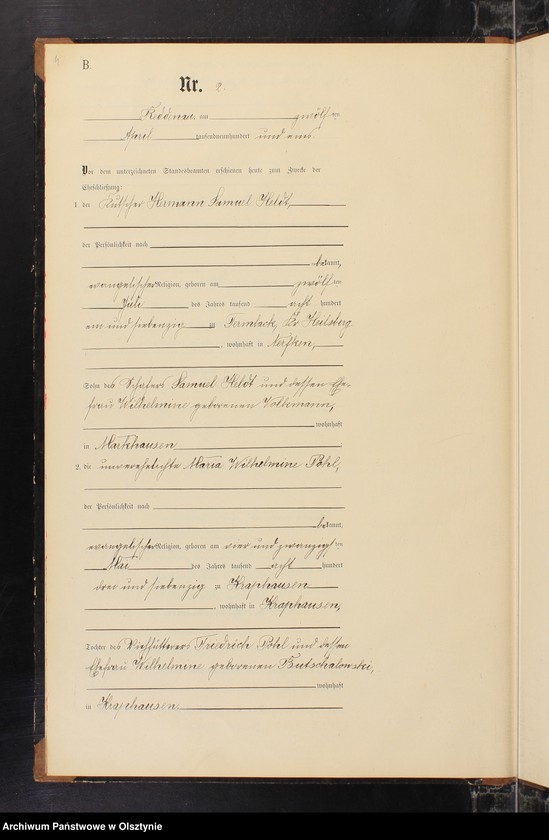 B.
Nr. 2.
am zwölften
April tausendneunhundert und eins.
Vor dem unterzeichneten Standesbeamten erschienen heute zum Zwecke der
Eheschließung:
1. der Kutscher Hermann Samuel Heldt,
der Persönlichkeit nach
bekannt,
evangelischer Religion, geboren am zwölften
Juli des Jahres tausend acht hundert
ein und siebenzig in Termlack, Kr. Heilsberg
, wohnhaft in
Sohn des Schäfers Samuel Heldt und dessen Ehe-
frau Wilhelmine geborenen Volkmann,
wohnhaft
in Markhausen
2. die unverehelichte Maria Wilhelmine Pohl,
der Persönlichkeit nach
bekannt,
evangelischer Religion, geboren am vier und zwanzigsten
Mai des Jahres tausend acht hundert
drei und siebenzig in Kraphausen
, wohnhaft in Kraphausen,
Tochter des Viehfütterers Friedrich Pohl und dessen
Ehefrau Wilhelmine geborenen Butschalowski,
wohnhaft
in Kraphausen
Archiwum Państwowe w Olsztynie